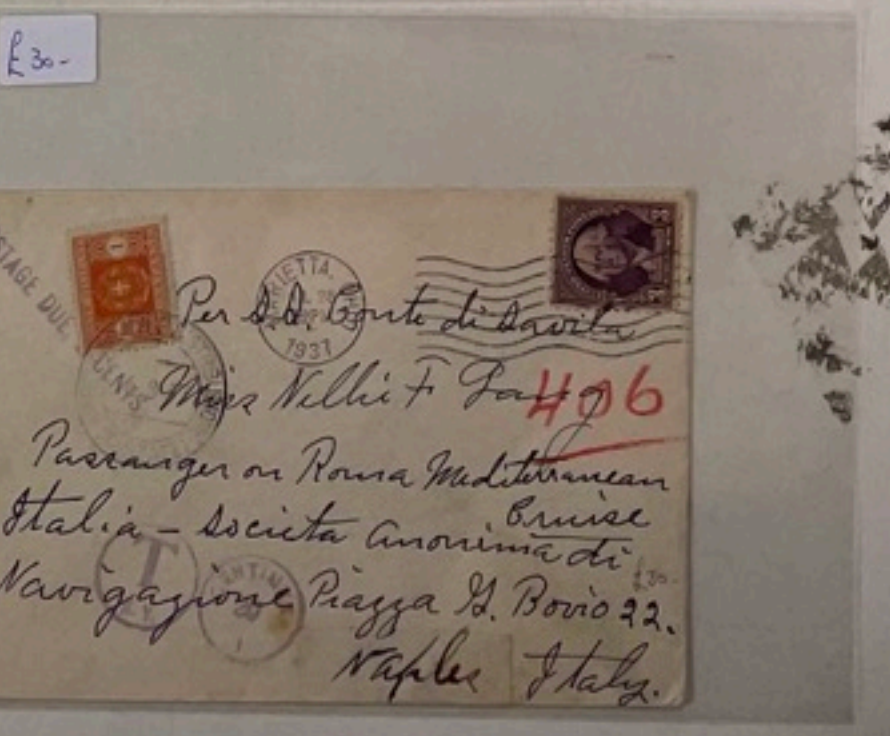 £30-
STAGE DUE
CENTS
RIETTA,
1937
Per S.S. Conte di Savila
Miss Nellie F
406
Passanger on Roma Mediterranean
Cruise
Italia - Societa Anonima di
Navigazione Piazza G. Bovio 22.
Naples Italy.
T
£30-
1
3